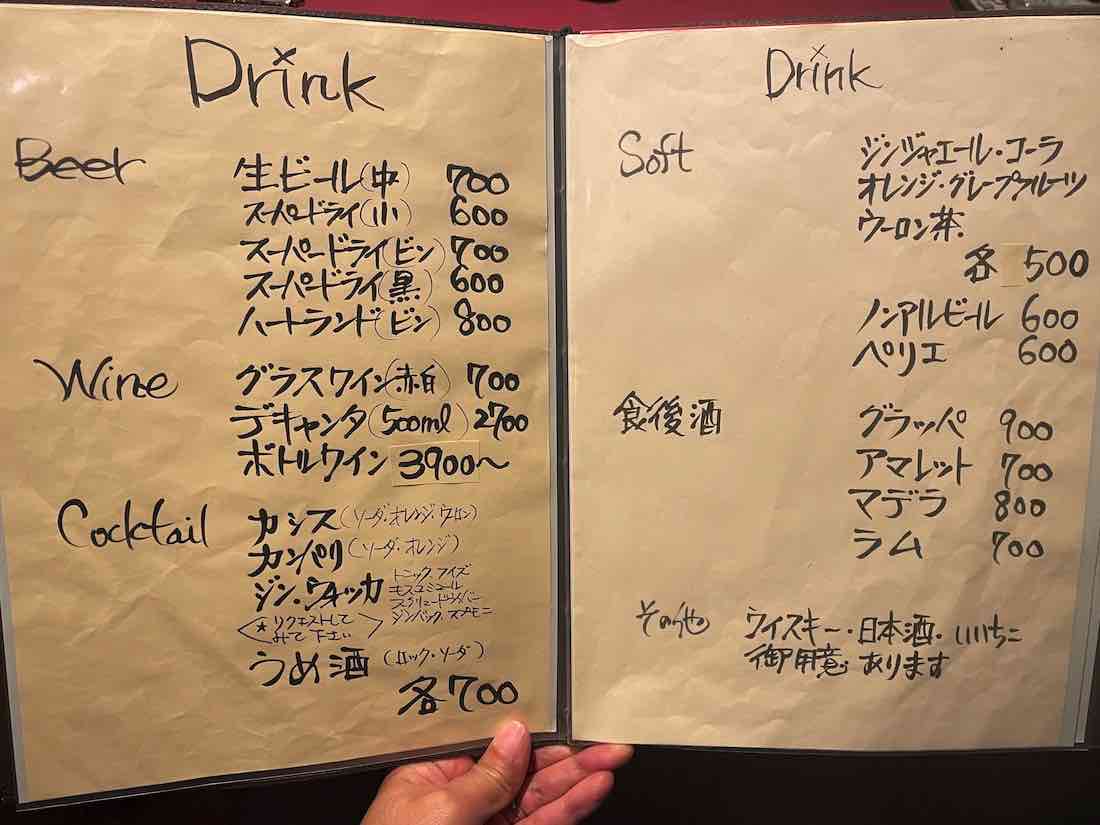 Drink
Beer
生ビール(中) 700
スーパードライ(小) 600
スーパードライ(ビン) 700
スーパードライ(黒) 600
ハートランド(ビン) 800
Wine
グラスワイン(赤白) 700
デキャンタ(500ml) 2700
ボトルワイン 3900〜
Cocktail
カシス(ソーダ・オレンジ・ウーロン)
カンパリ(ソーダ・オレンジ)
ジン・ウォッカ
トニック、フィズ
モスコミュール
スクリュードライバー
ジンバック、スプモーニ
★リクエストして
みて下さい
うめ酒(ロック・ソーダ)
各700
Drink
Soft
ジンジャエール・コーラ
オレンジ・グレープフルーツ
ウーロン茶
各 500
ノンアルビール 600
ペリエ 600
食後酒
グラッパ 900
アマレット 700
マデラ 800
ラム 700
その他
ウイスキー・日本酒・いいちこ
御用意あります